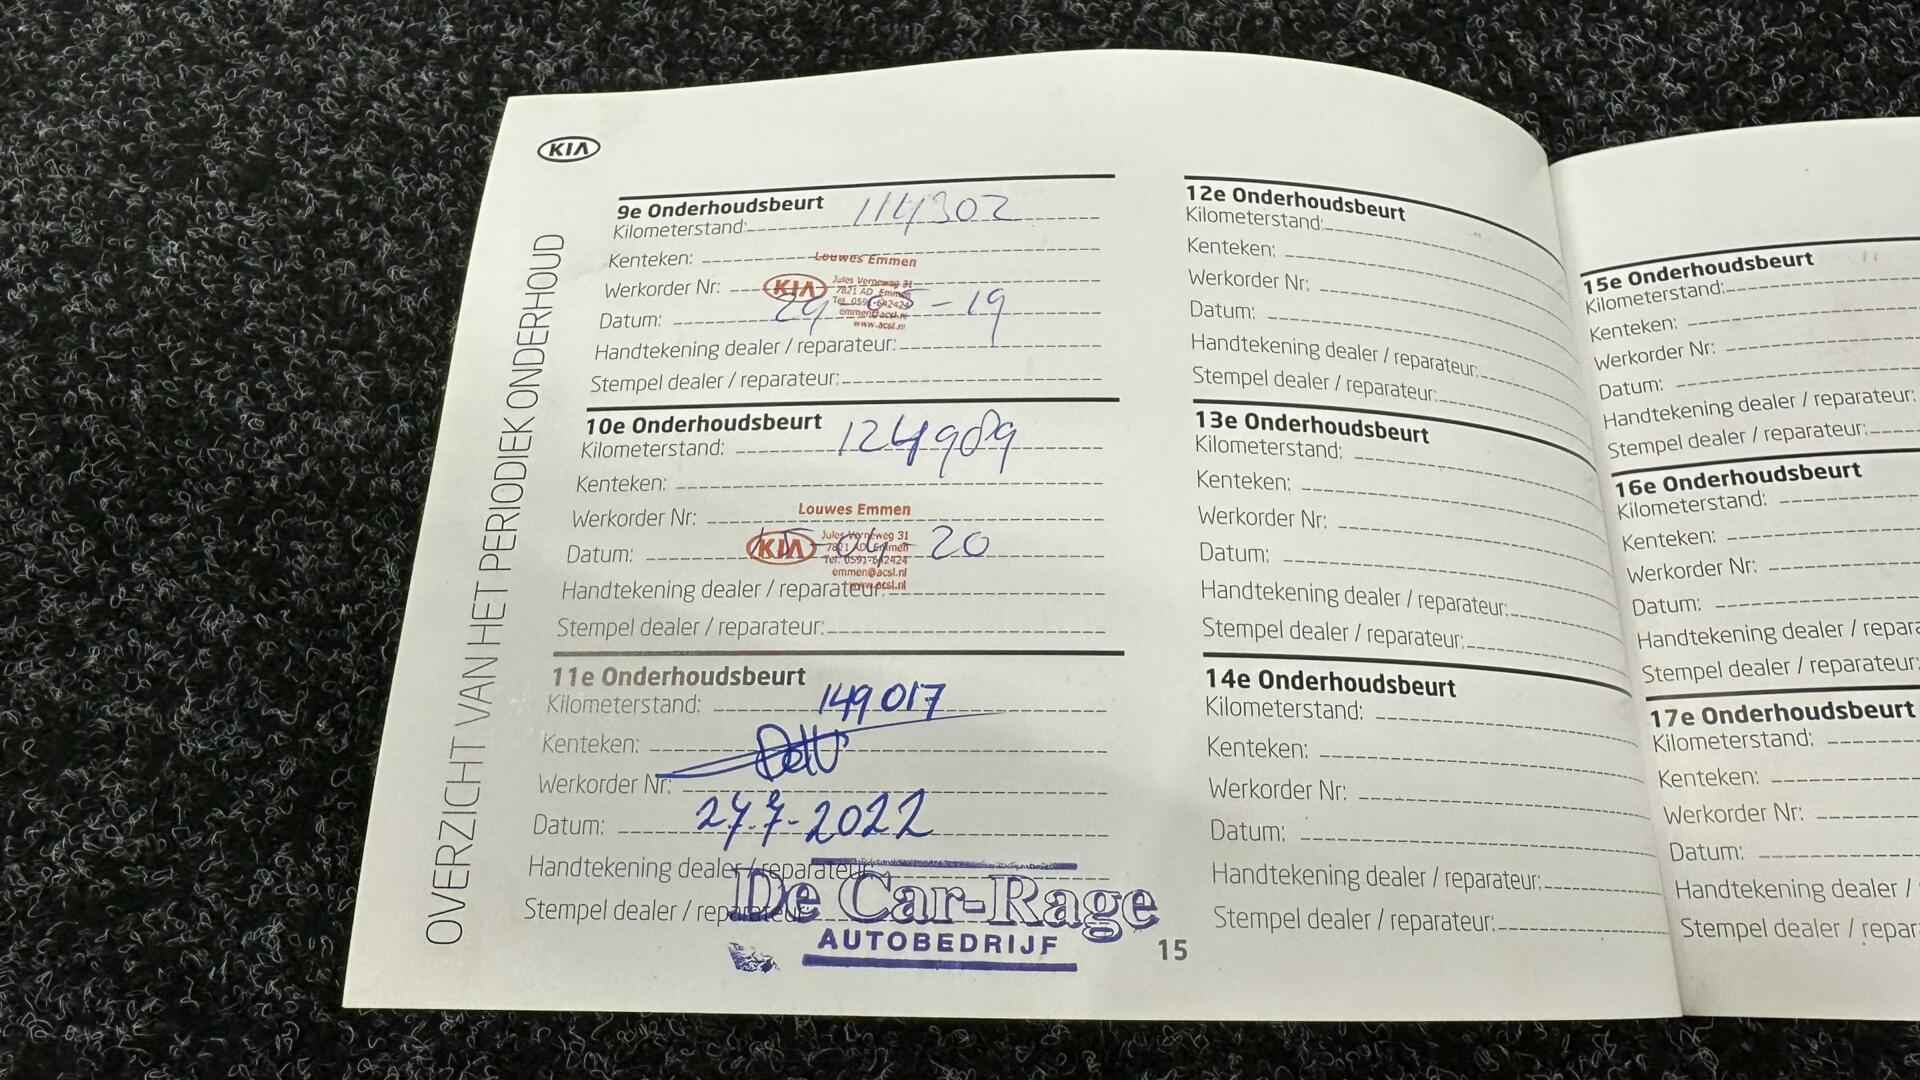 KIA
OVERZICHT VAN HET PERIODIEK ONDERHOUD
9e Onderhoudsbeurt
Kilometerstand: 114302
Kenteken:
Louwes Emmen
Werkorder Nr:
KIA
Jules Verneweg 31
7821 AD Emmen
Tel. 0591-642424
emmen@acsl.nl
www.acsl.nl
Datum: 29 - - 19
Handtekening dealer / reparateur:
Stempel dealer / reparateur:
10e Onderhoudsbeurt
Kilometerstand: 124989
Kenteken:
Louwes Emmen
Werkorder Nr:
KIA
Jules Verneweg 31
7821 AD Emmen
Tel. 0591-642424
emmen@acsl.nl
www.acsl.nl
Datum: 04 - 20
Handtekening dealer / reparateur:
Stempel dealer / reparateur:
11e Onderhoudsbeurt
Kilometerstand: 149017
Kenteken:
Werkorder Nr:
Datum: 27-7-2022
Handtekening dealer / reparateur:
Stempel dealer / reparateur:
De Car-Rage
AUTOBEDRIJF
12e Onderhoudsbeurt
Kilometerstand:
Kenteken:
Werkorder Nr:
Datum:
Handtekening dealer / reparateur:
Stempel dealer / reparateur:
13e Onderhoudsbeurt
Kilometerstand:
Kenteken:
Werkorder Nr:
Datum:
Handtekening dealer / reparateur:
Stempel dealer / reparateur:
14e Onderhoudsbeurt
Kilometerstand:
Kenteken:
Werkorder Nr:
Datum:
Handtekening dealer / reparateur:
Stempel dealer / reparateur:
15
15e Onderhoudsbeurt
Kilometerstand:
Kenteken:
Werkorder Nr:
Datum:
Handtekening dealer / reparateur:
Stempel dealer / reparateur:
16e Onderhoudsbeurt
Kilometerstand:
Kenteken:
Werkorder Nr:
Datum:
Handtekening dealer / repara
Stempel dealer / reparateur:
17e Onderhoudsbeurt
Kilometerstand:
Kenteken:
Werkorder Nr:
Datum:
Handtekening dealer /
Stempel dealer / repar